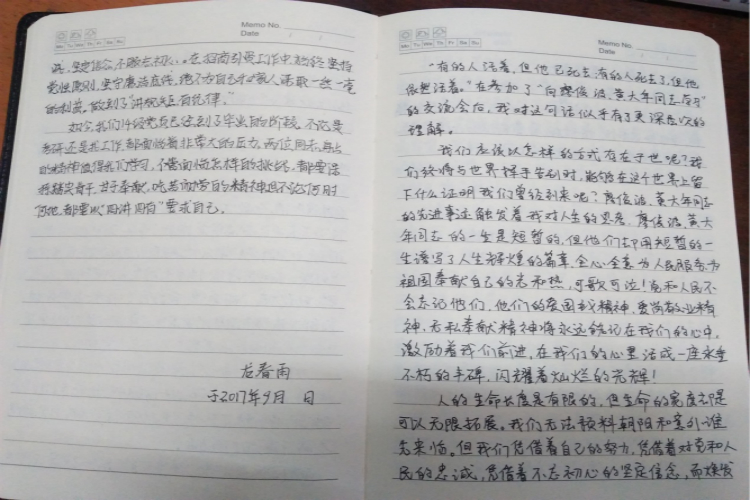 Memo No.
Date
Mo Tu We Th Fr Sa Su
坚定信念,不忘初心。在招商引资工作中,始终坚持
党性原则,坚守廉洁底线,绝不为自己和家人谋取一丝一毫
的利益,做到了"讲规矩、有纪律。"
如今,我们
都面临着非常大的压力。两位同志身上
的精神值得我们学习,不管面临怎样的挑战,都要
甘于奉献、吃苦耐劳的精神。无论何时
何地,都要以"四讲四有"要求自己。
龙春雨
于2017年9月 日
Memo No.
Date
Mo Tu We Th Fr Sa Su
"有的人活着,但他已死去;有的人死去了,但他
依然活着。"在参加了"向廖俊波、黄大年同志学习"
的交流会后,我对这句话似乎有了更深层次的
理解。
我们应该以怎样的方式存在于世呢?我
们终将与世界挥手告别时,能够在这个世界上留
下什么证明我们曾经到来呢?廖俊波、黄大年同志
的先进事迹触发着我对人生的思考。廖俊波、黄大
年同志的一生是短暂的,但他们却用短暂的一
生谱写了人生辉煌的篇章,全心全意为人民服务,为
祖国奉献自己的光和热,可歌可泣!党和人民不
会忘记他们,他们的爱国主义精神、爱岗敬业精
神、无私奉献精神将永远铭记在我们的心中,
激励着我们前进,在我们的心里活成一座永垂
不朽的丰碑,闪耀着灿烂的光辉!
人的生命长度是有限的,但生命的宽度却是
可以无限拓展。我们无法预料朝阳和意外谁
先来临。但我们凭借着自己的努力,凭借着对党和人
民的忠诚,凭借着不忘初心的坚定信念,而焕发